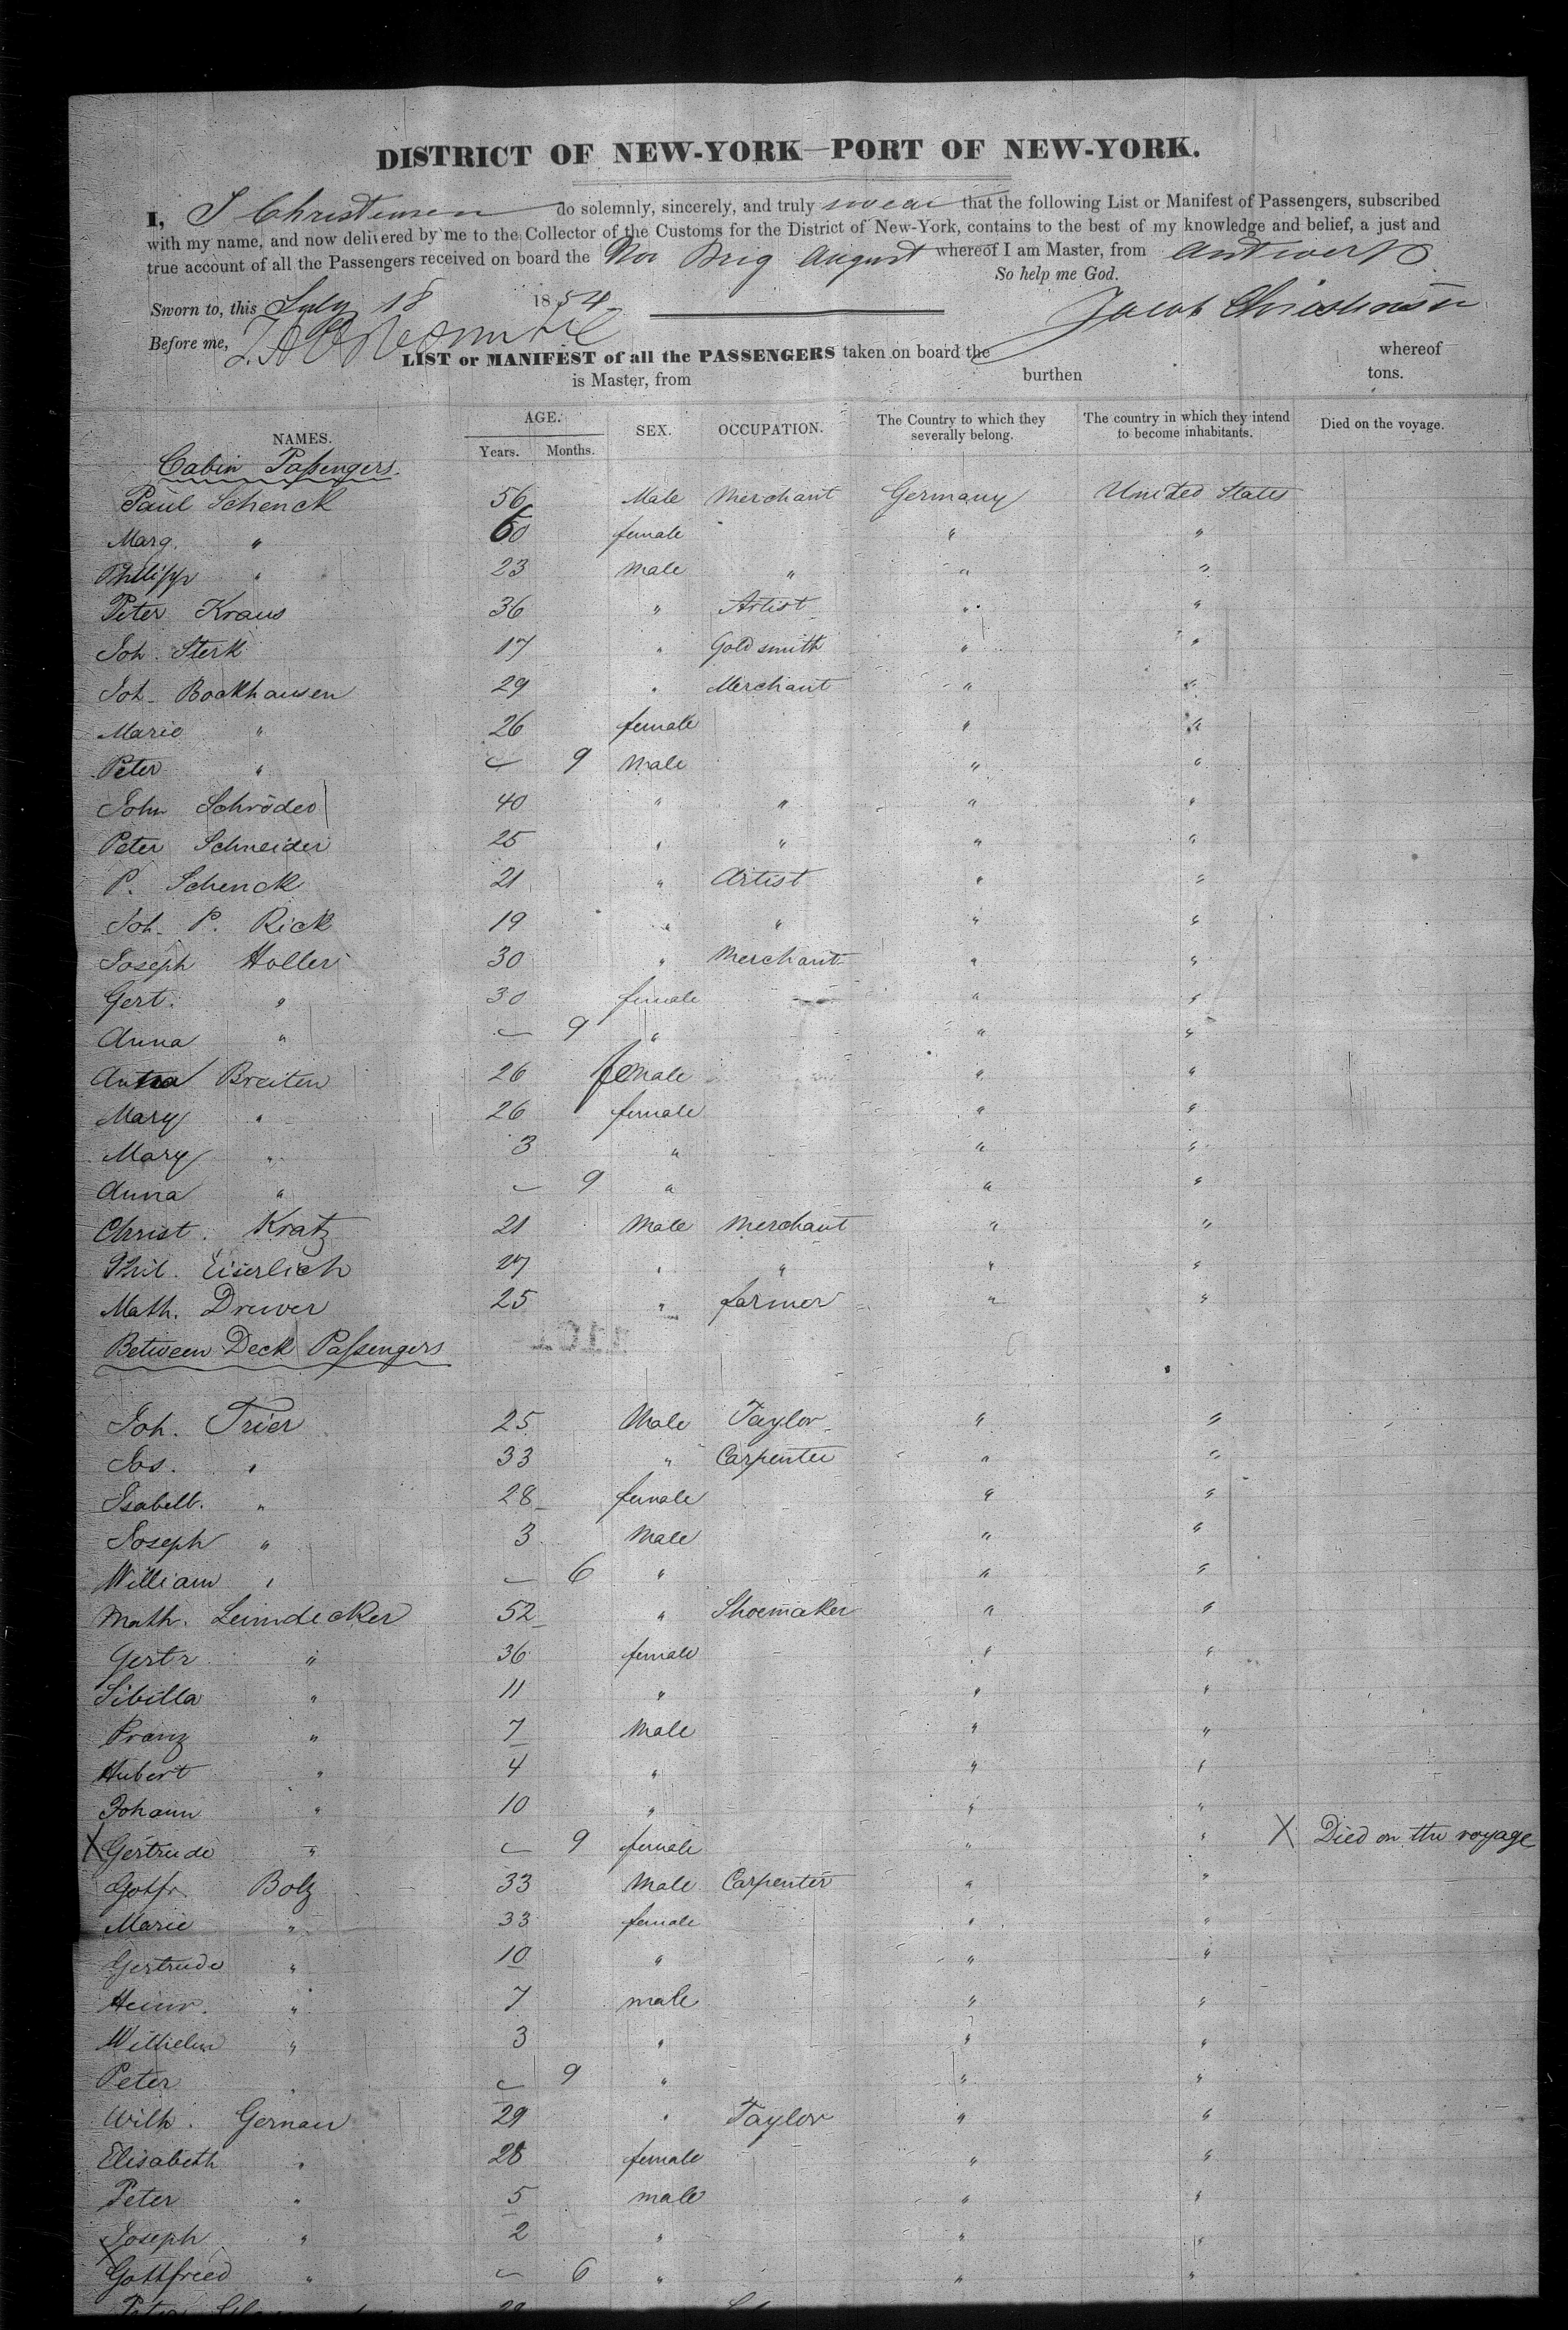 DISTRICT OF NEW-YORK—PORT OF NEW-YORK.
I, J Christensen do solemnly, sincerely, and truly swear that the following List or Manifest of Passengers, subscribed
with my name, and now delivered by me to the Collector of the Customs for the District of New-York, contains to the best of my knowledge and belief, a just and
true account of all the Passengers received on board the Nor Brig August whereof I am Master, from Antwerp
So help me God.
Sworn to, this July 18 1854 Jacob Christensen
Before me,
LIST or MANIFEST of all the PASSENGERS taken on board the whereof
is Master, from burthen tons.
NAMES. AGE. Years. Months. SEX. OCCUPATION. The Country to which they severally belong. The country in which they intend to become inhabitants. Died on the voyage.
Cabin Passengers.
Paul Schenck 56 Male Merchant Germany United States
Marg. " 60 female " "
Philipp " 23 Male " " "
Peter Kraus 36 " Artist " "
Joh. Sterk 17 " Goldsmith " "
Joh. Bockhausen 29 " Merchant " "
Marie " 26 female " "
Peter " – 9 Male " "
John Schröder 40 " " " "
Peter Schneider 25 " " " "
P. Schenck 21 " Artist " "
Joh. P. Rick 19 " " " "
Joseph Holler 30 " Merchant " "
Gert. " 30 female " "
Anna " – 9 " " "
Breiten 26 female " "
Mary " 26 female " "
Mary " 3 " " "
Anna " – 9 " " "
Christ. Kratz 21 Male Merchant " "
Phil. Eiserlich 27 " " " "
Math. Drewer 25 " farmer " "
Between Deck Passengers
Joh. Trier 25 Male Taylor " "
Jos. " 33 " Carpenter " "
Isabell. " 28 female " "
Joseph " 3 Male " "
William " – 6 " " "
Math. Leimdecker 52 " Shoemaker " "
Gertr " 36 female " "
Sibilla " 11 " " "
Franz " 7 Male " "
Hubert " 4 " " "
Johann " 10 " " "
X Gertrude " – 9 female " " X Died on the voyage
Gotfr. Bolz 33 Male Carpenter " "
Marie " 33 female " "
Gertrude " 10 " " "
Heinr. " 7 male " "
Wilhelm " 3 " " "
Peter " – 9 " " "
Wilh. Gernau 29 " Taylor " "
Elisabeth " 28 female " "
Peter " 5 male " "
Joseph " 2 " " "
X Gottfried " – 6 " " "
Peter